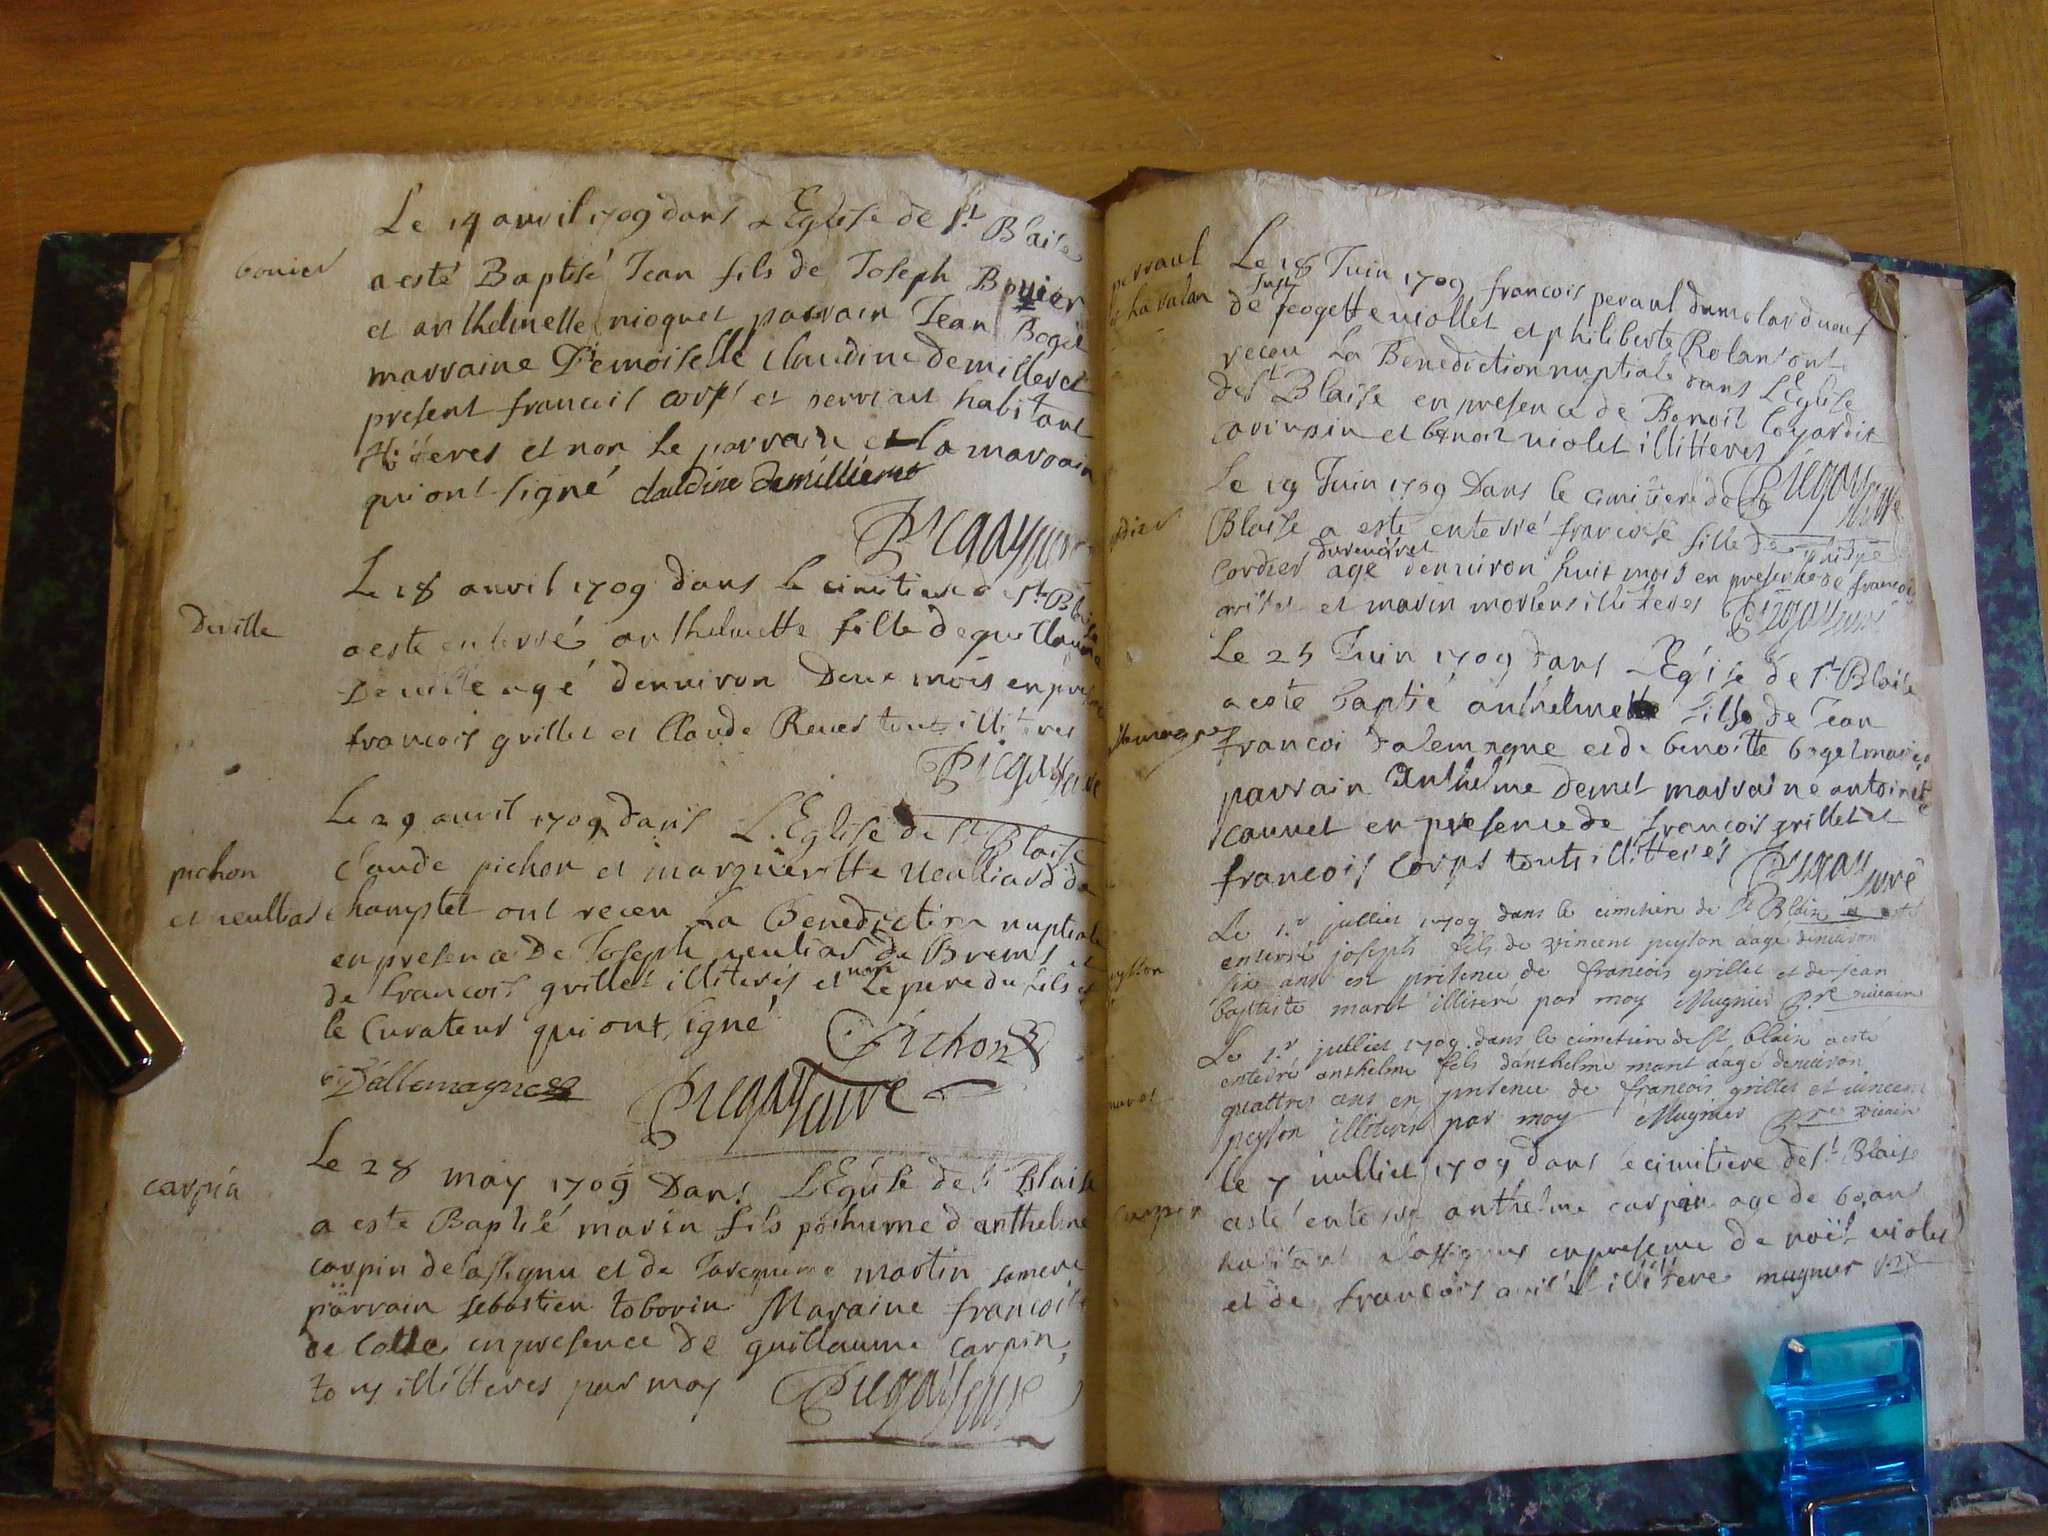 Le 14 auvril 1709 dans L'Eglise de St Blaise
bouier
a esté Baptisé Jean fils de Joseph Bouier
et anthelmette nioquet parrain Jean Boget
marraine Demoiselle claudine demilleret
present francois corps et serviant habitant
illiteres et non le parrain et la marrain
qui ont signé claudine demillieres
Le 18 auvril 1709 dans le cimitiere de St Blaise
Deville
a este enterré anthelmette fille de guillaume
Deville agé denniron Deux mois en pres
francois grillet et Claude Reues touts illiteres
Le 29 auvril 1709 dans L'Eglise de St Blaise
pichon
Claude pichon et margueritte ueulliard de
et ueulliard
champtel ont receu La Benediction nuptiale
en presence De Joseph ueuliar de Brens et
de francois grillet illiterés et non Le pere du fils et
le Curateur qui ont signé Pichon
Dallemagne
Le 28 may 1709 Dans L'Eglise de St Blaise
carpin
a este Baptisé marin fils posthume d'anthelme
carpin de lassignu et de Jacqueme martin samere
parrain sebastien toborin Maraine francoise
de Colle en presence de guillaume carpin,
tous illitteres par moy
perraul
Le 18 Juin 1709 francois peraul dumolard ueuf
et ha ralan
de Just pogette uiollet et philiberte Rolant ont
receu La Benediction nuptiale dans L'Eglise
de St Blaise en presence de Benoit
et benoit uiolet illitteres
Le 19 Juin 1709 Dans le cimitiere de St
Blaise a este enterré francoise fille de
cordier durenoiret age denniron huit mois en presence de francois
et marin illiteres
Le 25 Juin 1709 dans L'Egise de St Blaise
a este baptié anthelmette fille de Jean
francoi dalemagne et de benoitte boget mariés
parrain anthelme demet marraine antoinette
cannet en presence de francois grillet et
francois Corps touts illitterés
Le 1.r julliet 1709 dans le cimitiere de St Blaise a esté
enterré joseph fils de vincent peyson aagé denuiron
six ans est presence de francois grillet et de jean
baptiste maret illiteré par moy Mugnier Ptre vicaire
Le 1.r julliet 1709 dans le cimetiere de St blaise a esté
enterré anthelme fils danthelme maret aagé denuiron
maret
quattres ans en presence de francois grillet et vincent
peyson illiterés par moy Mugnier Ptre vicaire
le 7 iulliet 1709 dans le cimitiere de St Blaise
carpin
a esté enterre anthelme carpin age de 60 ans
habitant Lassignus en presence de noël uiolet
et de francois illitere mugnier ptre